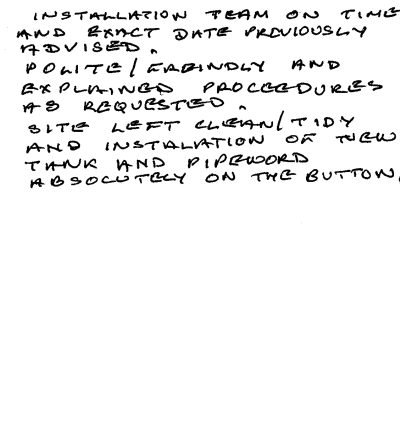 INSTALLATION TEAM ON TIME
AND EXACT DATE PREVIOUSLY
ADVISED.
POLITE/FREINDLY AND
EXPLAINED PROCEEDURES
AS REQUESTED.
SITE LEFT CLEAN/TIDY
AND INSTALATION OF NEW
TANK AND PIPEWORD
ABSOLUTELY ON THE BUTTON.